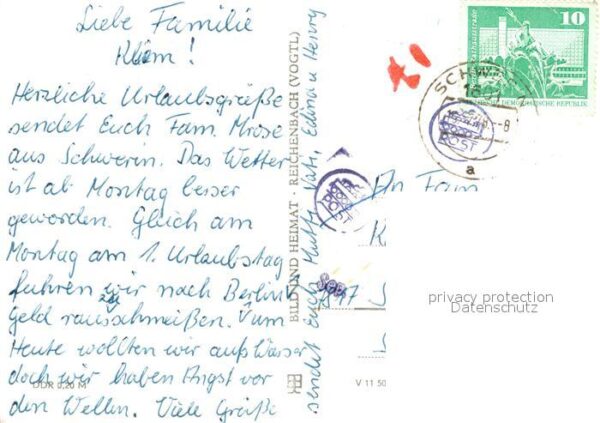 Liebe Familie
Klöm!
Herzliche Urlaubsgrüße
sendet Euch Fam. Mrose
aus Schwerin. Das Wetter
ist ab Montag besser
geworden. Gleich am
Montag am 1. Urlaubstag
fuhren wir nach Berlin
Geld rausschmeißen. zum
Heute wollten wir aufs Wasser
doch wir haben Angst vor
den Wellen. Viele Grüße
sendet Euch Mutti, Vati, Edina u. Henry
DDR 0,20 M
BILD UND HEIMAT · REICHENBACH (VOGTL)
V 11 50
10
DEUTSCHE DEMOKRATISCHE REPUBLIK
SCHWERIN
-8
a
POST
An Fam
K
S
privacy protection
Datenschutz